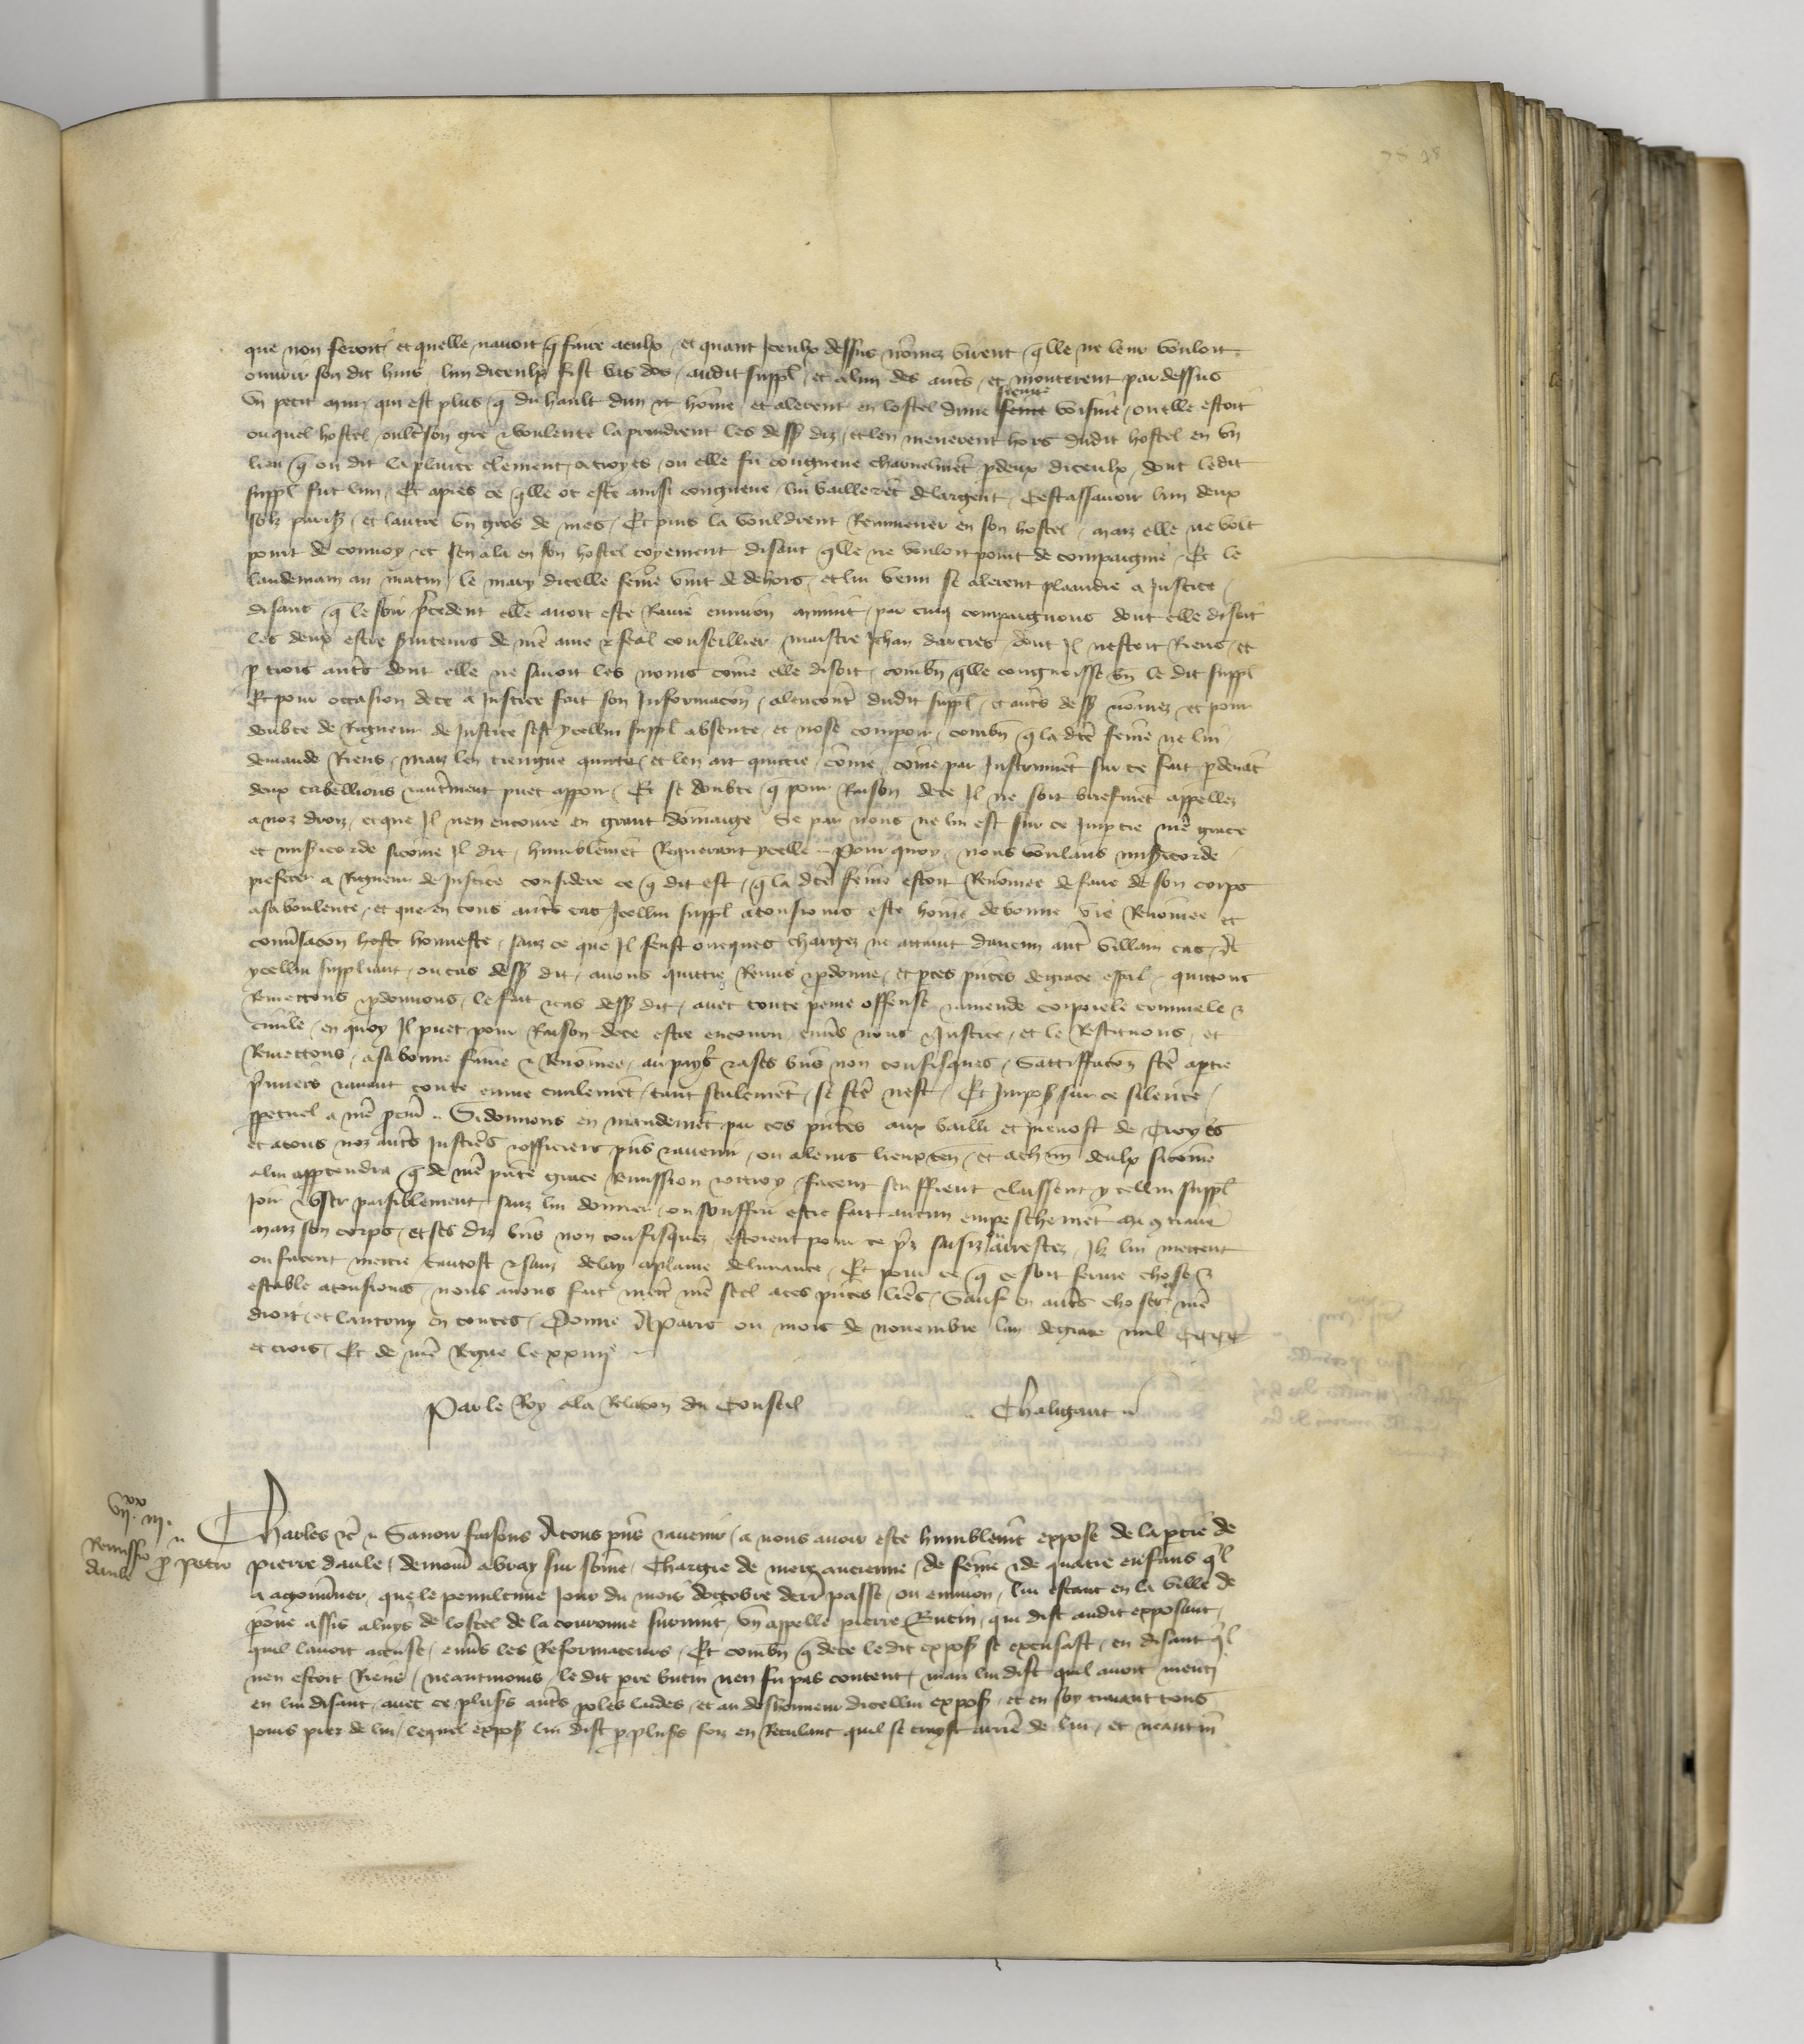 78 78
que non feroit et quelle navoit q̃ faire aeulx et quant Iceulx dessus nõmez virent qlle ne leur vouloit
ouvrir son dit huis lun diceulx fist bas dos audit suppl et a lun des autr̃s et monterent par dessus
un petit mur qui est plus q̃ du hault dun hõme et alerent en lostel dune sienne voisine ou elle estoit
ouquel hostel oultr̃ son gre & voulente la prindrent les dess diz et len menerent hors dudit hostel en un
lieu q̃ on dit la place clement a troyes ou elle fu cougneue charnelmẽt p deux diceulx dont ledit
suppl fut lun Et apres ce qlle ot este ainsi congneue lui baillerẽt de largent Cestassavoir lun deux
solz paris et lautre un gros de mes Et puis la vouldrent Remmener en son hostel maiz elle ne volt
point de convoy et sen ala en son hostel coyement disant qlle ne vouloit point de compaignie Et le
landemain au matin le mary dicelle feme vint de dehors et lui venu se alerent plaindre a Justice
disant q̃ le soir p̃cedent elle avoit este Ravie environ mynuit par cinq compaignons dont elle disoit
les deux estre s̃viteurs de nr̃e ame & feal conseillier maistre Jehan darcies dont Il nestoit Riens et
p trois autr̃s dont elle ne savoit les noms cõme elle disoit combñ qlle congnoisse bñ le dit suppl
Et pour occasion de ce a Justice fait son Informacõn alencontr̃ dudit suppl et autr̃s dess nõmez et pour
doubte de Rigueur de Justice sest ycellui suppl absente et nose compoir combñ q̃ la dicte feme ne lui
demande Riens maiz len tiengne quitte et len ait quittie cõme cõme par Instrumẽt sur ce fait p devãt
deux tabellions autr̃ment puet appoir Et se doubte q̃ pour Raison de ce Il ne soit briefmẽt appellez
a noz droiz et que Il nen encoure en grant dõmaige Se par nous ne lui est sur ce Imptie nr̃e grace
et mis̃icorde sicõme Il dit humblemẽt Requerant ycelle Pour quoy nous voulans mis̃icorde
preferer a Rigueur de Justice considere ce q̃ dit est q̃ la dicte feme estoit Renõmee de faire de son corps
a sa voulente et que en tous autr̃s cas Icellui suppl a tousjours este hõme de bonne vie Renõmee et
conv̂sacõn honneste sanz ce que Il feust oncques chargez ne attaint daucun autr̃ villain cas A
ycellui suppliant ou cas dess dit avons quittie Remis & pdonne et p ces p̃ntes de grace espal quittons
Remettons & pdonnons le fait & cas dess dit avec toute peine offense & amende corporele criminele &
civile en quoy Il puet pour Raison de ce estre encouru env̂s nous & Justice et le Restituons et
Remettons a sa bonne fame & Renõmee au pays & a ses biẽs non confisques Sattiffacõn fc̃e a ptie
p̂miers & avant toute euvre civilemẽt tant seulemẽt se fc̃e nest Et Impos̃ sur ce silence
ppetuel a nr̃e pcur̃ Sidonnons en mandemẽt par ces p̃ntes aux bailli et prevost de Troyes
et a tous noz autr̃s Justiciẽrs & officiers p̃ns & avenir ou a leurs lieuxten et a chũn deulx sicõme
a lui appartendra q̃ de nr̃e p̃nte grace Remission & ottroy facent seuffrent & laissent ycellui suppl
Joir & user paisiblement sanz lui donner ou souffrir estre fait aucun empeschemẽt au 9traire
maiz son corps et ses diz biẽs non confisquez estoient pour ce p̃s saisiz ou arrestez Ilz lui mettent
ou facent mettre tantost & sanz delay a plaine delivrance Et pour ce q̃ ce soit ferme chose &
estable a tousjours nous avons fait mettr̃ nr̃e seel a ces p̃ntes lr̃es Sauf en autr̃s choses nr̃e
droit et lautruy en toutes Donne A Paris ou mois de novembre lan de grace mil CCCC
et trois Et de nr̃e Regne le xxiiijᵉ
Par le Roy a la Relacõn du Conseil Chaligaut
vijˣˣ iij.
Remissio p̃ petro daule
Charles &c̃ Savoir faisons A tous p̃ns & avenir a nous avoir este humblemẽt expose de la ptie de
pierre daule demour̃ a bray sur sõme Chargie de mere ancienne de feme & de quatre enfans q̃l
que le penultime Jour du mois doctobre derr̃ passe ou environ lui estant en la ville de
assis a luys de lostel de la couronne survint un appelle pierre Butin qui dist audit exposant
quil lavoit accuse env̂s les Reformateurs Et combñ q̃ de ce ledit expos̃ se excusast en disant q̃l
nen estoit Riens neantmoins le dit p̃re butin nen fu pas content maiz lui dist quil avoit menti
en lui disant avec ce plus̃s autr̃s poles laides et au deshonneur dicellui expos̃ et en soy tirant tous
Jours prez de lui lequel expos̃ lui dist p plus̃s foiz en Reculant quil se traist arrie de lui et neantm̃